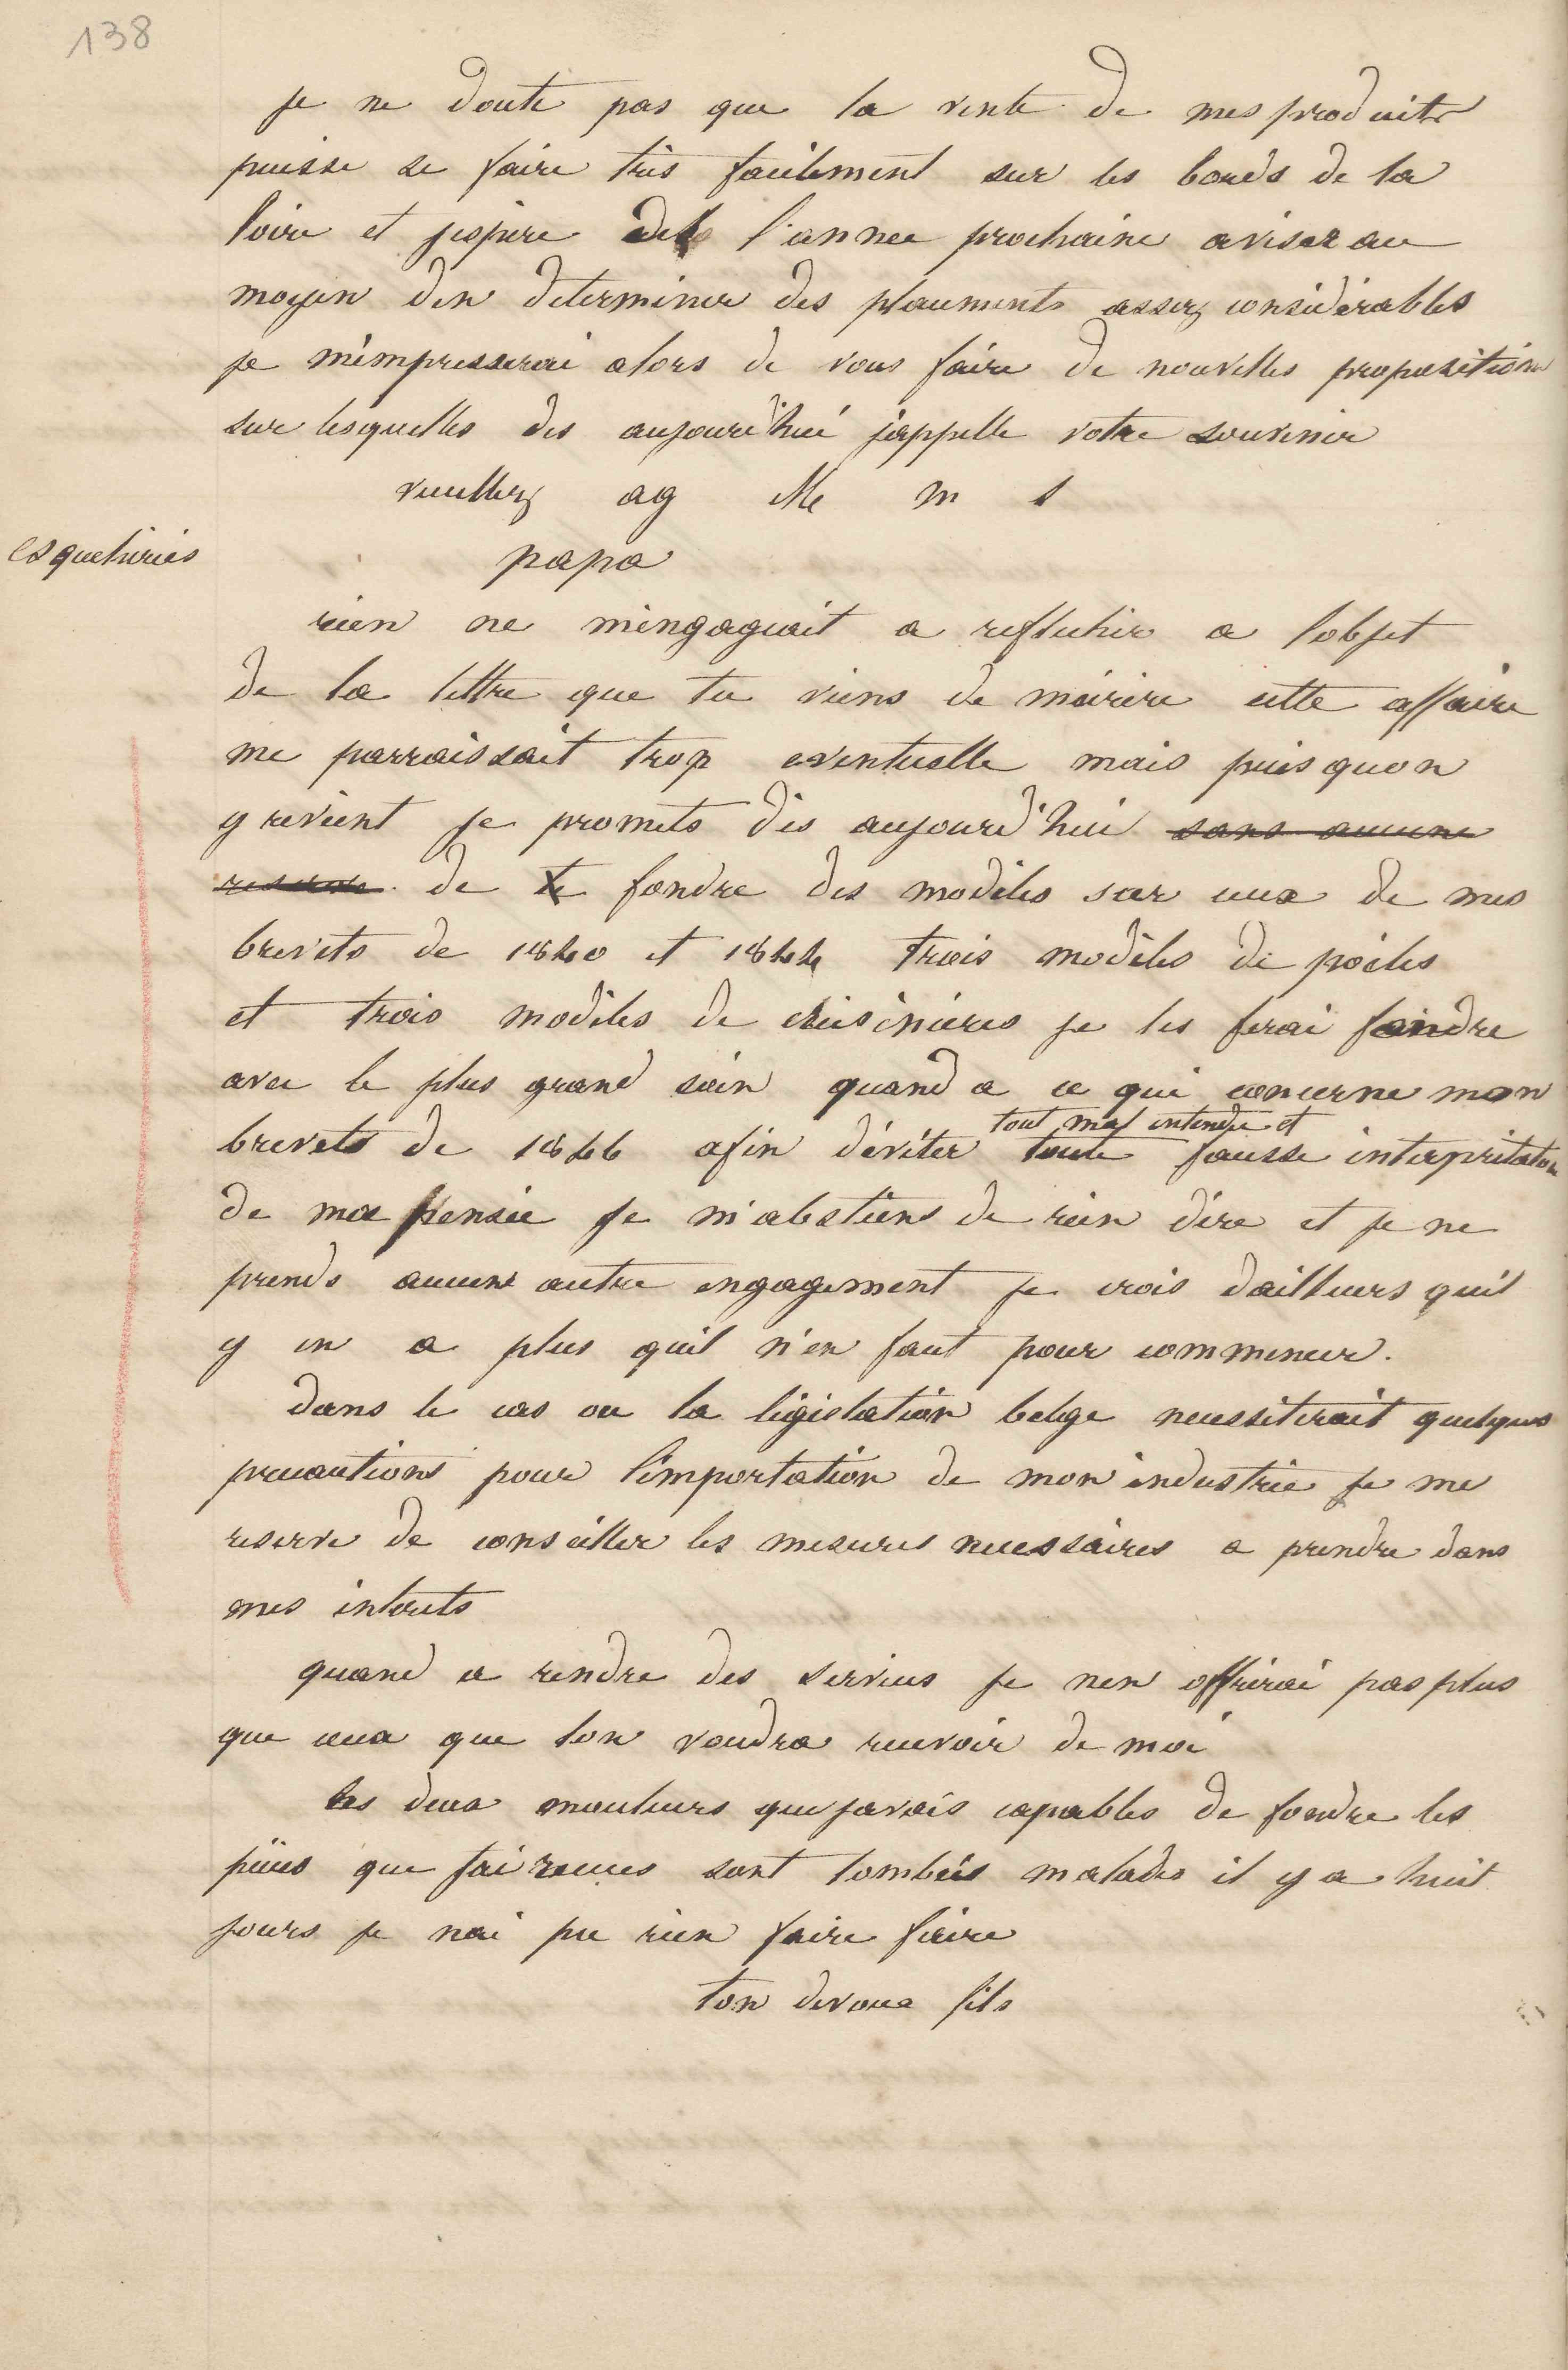 138
je ne doute pas que la vente de mes produits
puisse se faire tres facilement sur les bords de la
loire et jespere des l'annee prochaine aviser au
moyen den determiner des placements assez considérables
je m'empresserai alors de vous faire de nouvelles proposition
sur lesquelles des aujourd'hui j'appelle votre souvenir
veuillez ag Me m s
esqueheries
papa
rien ne m'engageait a reflechir a l'objet
de la lettre que tu viens de m'écrire cette affaire
me parraissait trop eventuelle mais puis quon
y revient je promets dès aujourd'hui sans aucune
reserve de te fondre des modèles sur ceux de mes
brevets de 1840 et 1844 trois modèles de poëles
et trois modèles de cuisinieres je les ferai fondre
avec le plus grand soin quand a ce qui concerne mon
tout mal entendu et
brevets de 1846 afin d'éviter toute fausse interpritation
de ma pensée je m'abstiens de rien dire et je ne
prends aucun autre engagement je crois dailleurs quil
y en a plus quil n'en faut pour commencer.
dans le cas ou la législation belge necessiterait quelques
precautions pour l'importation de mon industrie je me
reserve de conseiller les mesures necessaires a prendre dans
mes interets
quand a rendre des services je nen offrirai pas plus
que ceux que lon voudra recevoir de moi
les deux mouleurs que javais capables de fondre les
pièces que jai recues sont tombés malades il y a huit
jours je nai pu rien faire faire
ton devoué fils